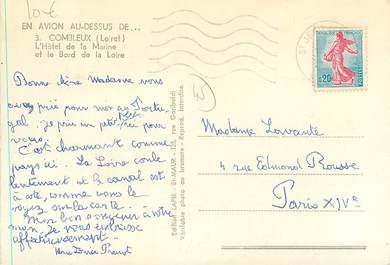 EN AVION AU-DESSUS DE...
3. COMBLEUX (Loiret)
L'Hôtel de la Marine
et le Bord de la Loire
Bonne chère Madame vous
avez prié pour moi au Portu
gal. je prie un petit peu pour
vous.
C'est charmant comme
pays ici. La Loire coule
lentement et le canal est
à côté, comme vous le
voyez sur la carte.
Mon bon souvenir à votre
mari, je vous embrasse
affectueusement
Edition LAPIE - St-MAUR - 128, rue Garibaldi
Véritable photo au bromure - Reprod. interdite
0,20
Madame
4 rue Edmond Rousse
Paris XIVe